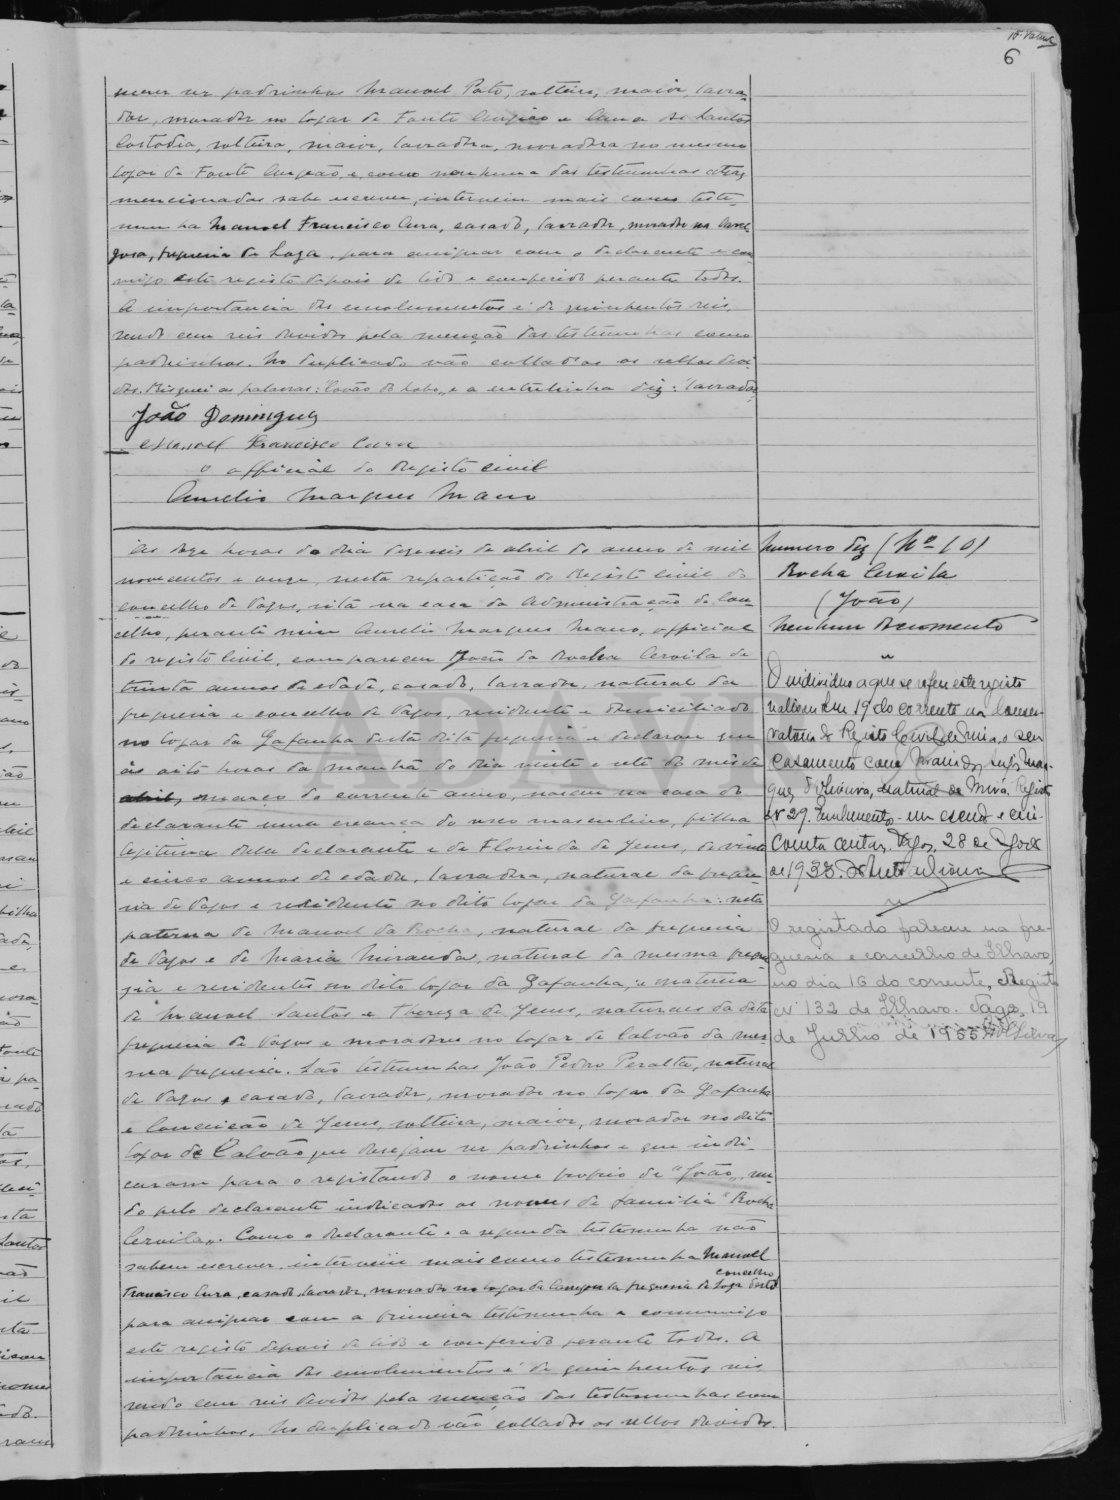 6
serem seus padrinhos Manoel Pato, solteiro, maior, lavra-
dor, morador no logar de Fonte e dos Santos
Custodia, solteira, maior, lavradora, moradora no mesmo
logar da Fonte e, como nenhuma das testemunhas atraz
mencionadas sabe escrever, interveiu mais como teste-
munha Manoel Francisco Cura, casado, lavrador, morador na
freguesia de Soza, para assignar com o declarante e co-
migo este registo depois de lido e conferido perante todos.
A importancia dos emolumentos é de quinhentos reis,
sendo cem reis devidos pela menção das testemunhas como
padrinhos. No duplicado vão collados os sellos devi-
dos. Risquei as palavras: "Covão do Lobo" e a entrelinha diz: "lavrador"
João Domingues
Manoel Francisco Cura
O official do Registo civil
Aurelio Marques Mano
Às doze horas do dia dezeseis de abril do anno de mil
novecentos e onze, nesta repartição do Registo civil do
concelho de Vagos, sita na casa da Administração do Con-
celho, perante mim Aurelio Marques Mano, official
do registo civil, compareceu João da Rocha Cervila de
trinta annos de edade, casado, lavrador, natural da
freguesia e concelho de Vagos, residente e domiciliado
no logar da Gafanha desta dita freguesia e declarou que
às oito horas da manhã do dia vinte e sete do mês de
abril, março do corrente anno, nasceu na casa do
declarante uma creança do sexo masculino, filha
legitima delle declarante e de Florinda de Jesus, de vinte
e cinco annos de edade, lavradora, natural da fregue-
sia de Vagos e residente no dito logar da Gafanha: neta
paterna de Manoel da Rocha, natural da freguesia
de Vagos e de Maria Miranda, natural da mesma fregue-
sia e residentes no dito logar da Gafanha, e materna
de Manoel Santos e Thereza de Jesus, naturaes da dita
freguesia de Vagos e moradores no logar de Calvão da mes-
ma freguesia. São testemunhas João Pedro Peralta, natural
de Vagos, casado, lavrador, morador no logar da Gafanha
e Conceição de Jesus, solteira, maior, morador no dito
logar de Calvão que desejam ser padrinhos e que indi-
caram para o registando o nome proprio de "João", sen-
do pelo declarante indicados os nomes de familia "Rocha
Cervila". Como o declarante e a segunda testemunha não
sabem escrever, interveiu mais como testemunha Manoel
Francisco Cura, casado, lavrador, morador no logar de da freguesia de Soza deste concelho
para assignar com a primeira testemunha e commigo
este registo depois de lido e conferido perante todos. A
importancia dos emolumentos é de quinhentos reis
sendo cem reis devidos pela menção das testemunhas como
padrinhos. No duplicado vão collados os sellos devidos.
Numero dez (Nº 10)
Rocha Cervila
(João)
Nenhum Documento
"
O individuo a que se refere este registo
realizou em 19 do corrente na Conser-
vatória do Registo Civil de Mira, o seu
casamento com Maria de Jesus Mar-
ques de Oliveira, natural de Mira. Registo
Nº 29. Emolumento - um escudo e cin-
coenta centavos. Vagos, 28 de
de 1933.
"
O registado faleceu na fre-
guesia e concelho de Ilhavo,
no dia 16 do corrente, Registo
nº 132 de Ilhavo. Vagos, 19
de Julho de 1955 Silva